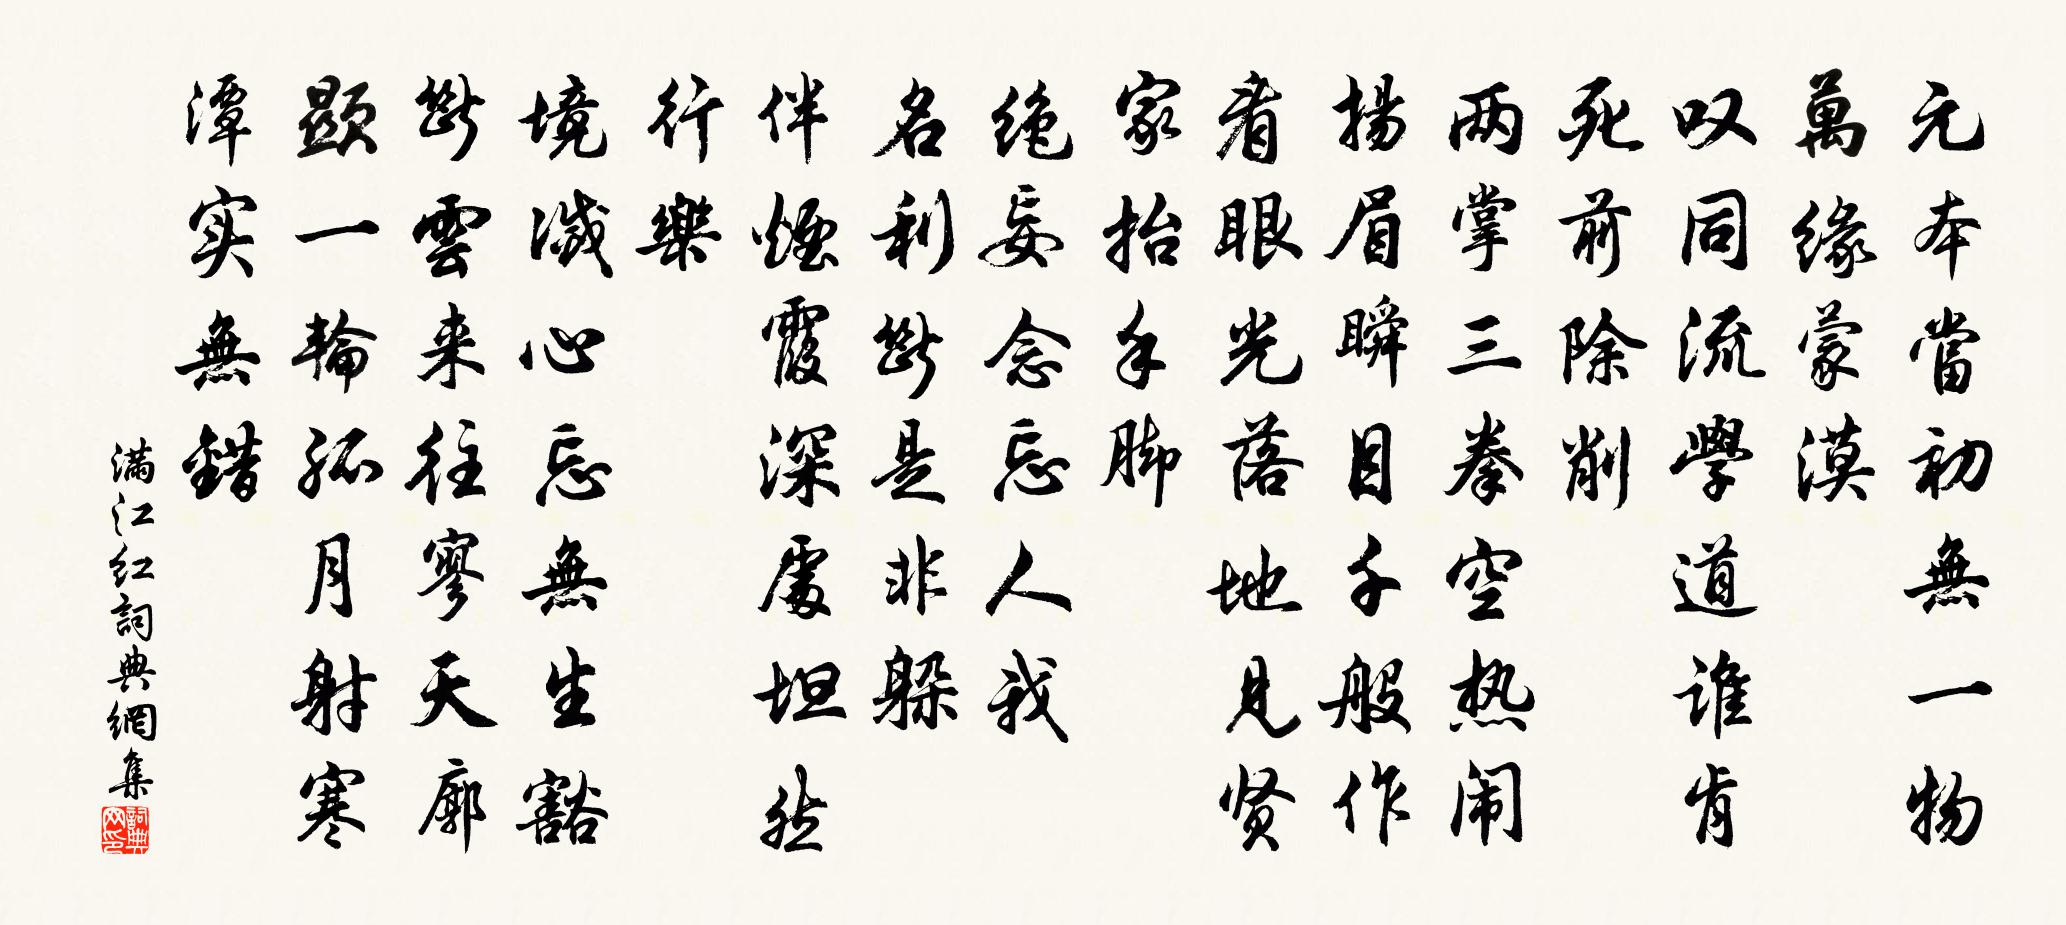 元本當初無一物
萬緣蒙漠
叹同流學道谁肯
死前除削
两掌三拳空热闹
揚眉瞬目千般作
看眼光落地見贤
家抬手脚
绝妄念忘人我
名利斷是非躲
伴煙霞深處坦然
行樂
境滅心忘無生豁
斷雲来往寥天廓
顯一輪孤月射寒
潭实無錯
满江红詞典網集
詞典網印